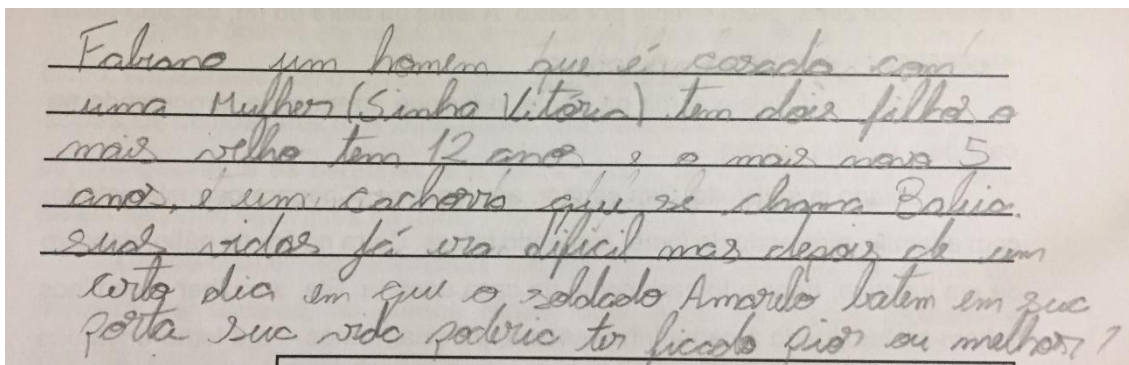 Fabiano um homem que é casado com
uma Mulher (Sinha Vitória) tem dois filhos o
mais velho tem 12 anos e o mais novo 5
anos, e um cachorro que se chama Balia.
suas vidas já era dificil mas depois de um
certo dia em que o soldado Amarelo batem em sua
porta sua vida poderia ter ficado pior ou melhor?